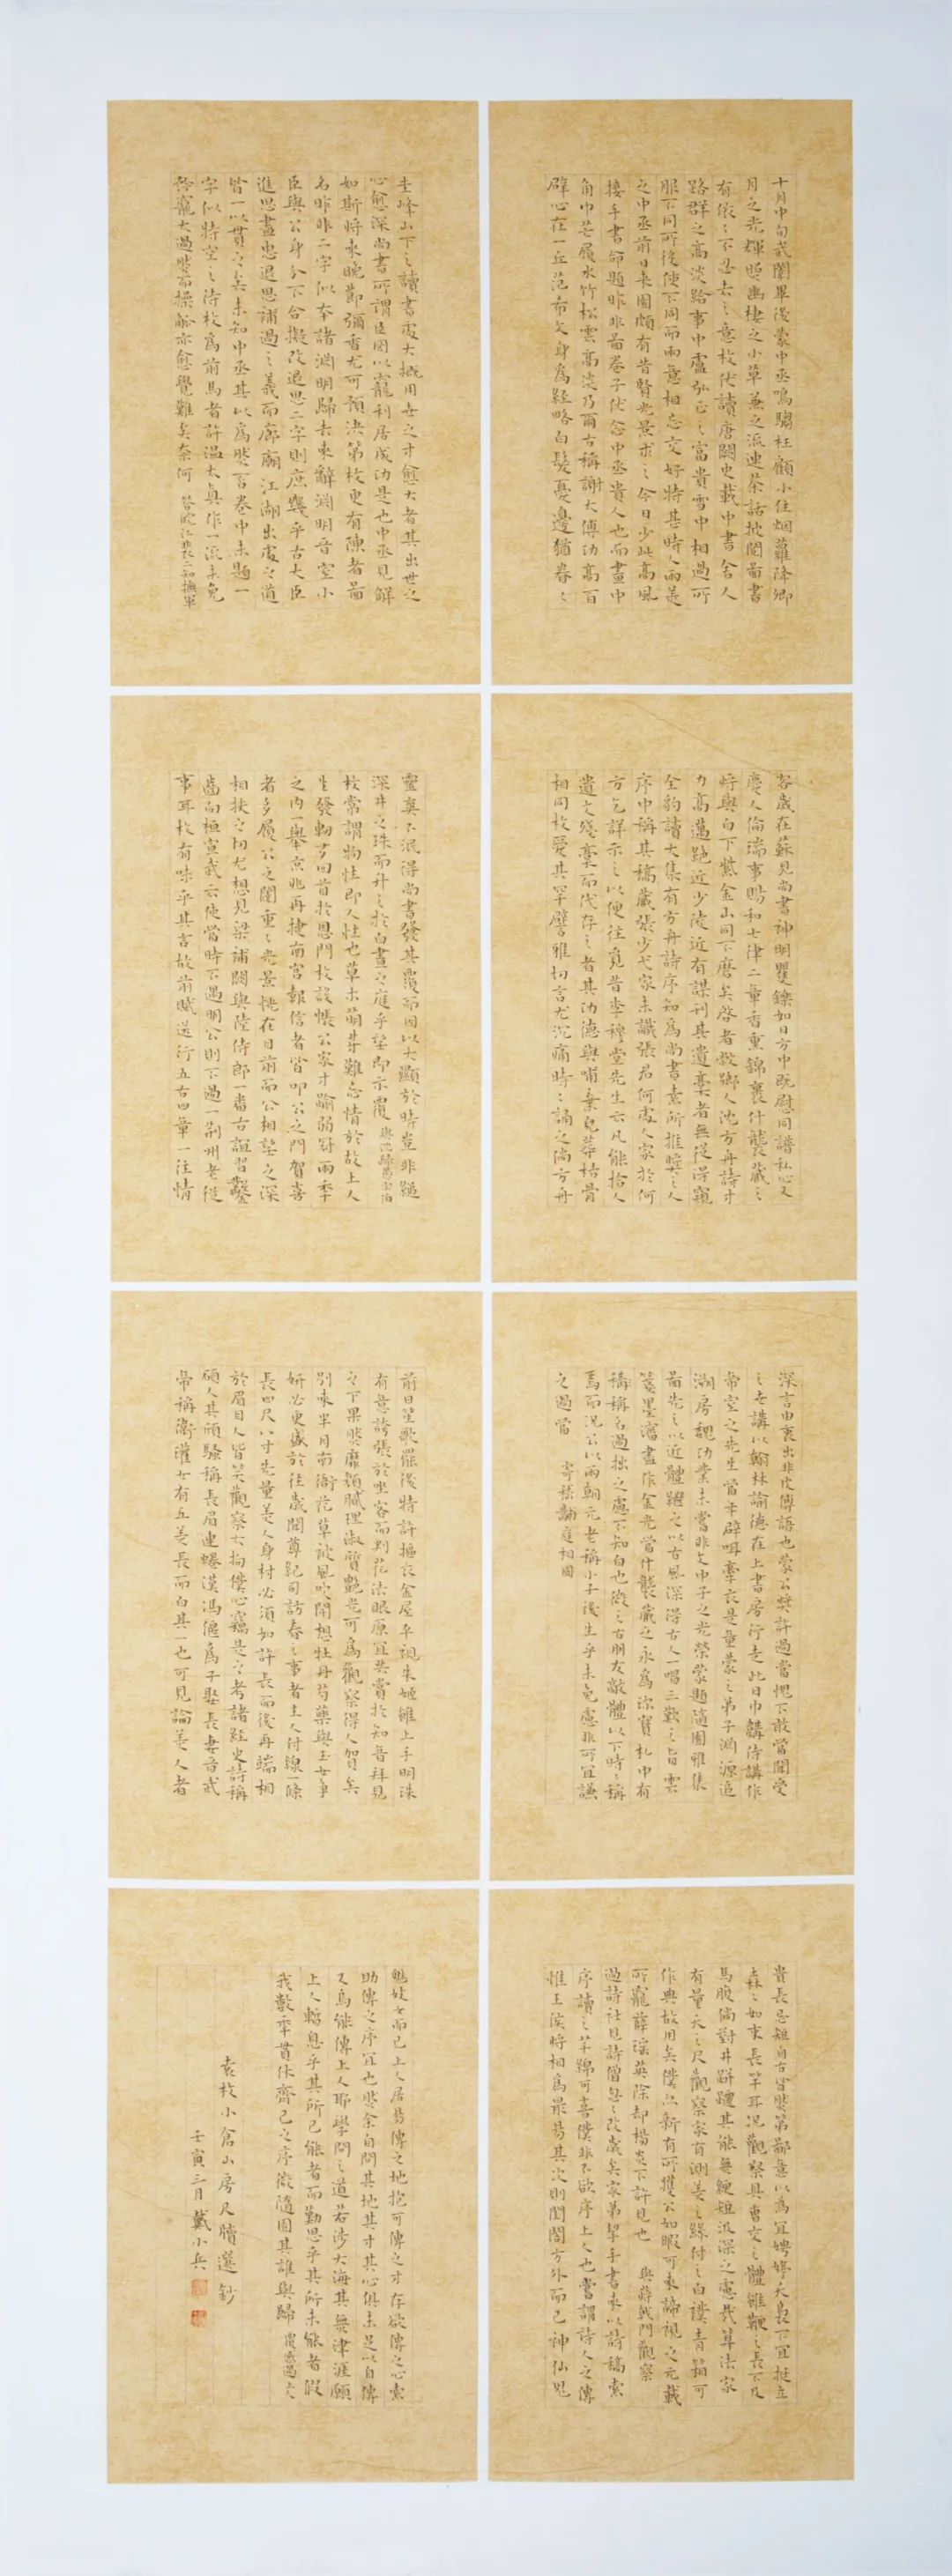 十月中旬武闈畢後蒙中丞鳴騶枉顧小住烟蘿降卿
月之光輝照幽棲之小草兼之流連茶話披閱圖書
有依之不忍去之意枚伏讀唐闕史載中書舍人
路群之高淡給事中盧弘正之富貴雪中相過所
服不同所後使不同而兩意相忘交好特甚時人兩美
之中丞前日來園頗有昔賢光景求之今日少此高風
接手書命題昨非圖卷子伏念中丞貴人也而畫中
角巾芒屨水竹松雲高淡乃爾古稱謝太傅功高百
辟心在一丘范希文身為經略白髮憂邊猶眷之
生峰山下之讀書處大概用世之才愈大者其出世之
心愈深尚書所謂臣罔以寵利居成功是也中丞見解
如斯將來晚節彌香尤可預決第枚更有陳者圖
名昨非二字似本諸淵明歸去來辭淵明晉室小
臣與公身分不合擬改退思二字則庶幾乎古大臣
進思盡忠退思補過之義而廊廟江湖出處之道
皆一以貫之矣未知中丞其以為然否卷中未題一
字似特空之待枚為前馬者許温太真作一流未免
矜寵太過然而操觚亦愈覺難矣奈何 答皖江裴二知撫軍
客歲在蘇見尚書神明矍鑠如日方中既慰同譜私心又
慶人倫瑞事賜和七律二章香重錦裹什襲藏之
將與白下紫金山同不磨矣啓者敝鄉沈方舟詩才
力高邁絶近少陵近有謀刊其遺稾者無從得窺
全豹讀大集有方舟詩序知為尚書素所推獎之人
序中稱其稿藏張少弋家未識張君何處人家於何
方乞詳示之以便往覓昔李穆堂先生云凡能拾人
遺文殘稾而代存之者其功德與哺棄兒葬枯骨
相同枚愛其罕譬雅切言尤沉痛時之誦之倘方舟
靈爽不泯得尚書發其覆而因以大顯於時豈非縋
深井之珠而升之於白晝之庭乎望即示覆 與沈歸愚尚書
枚嘗謂物性即人性也草木萌芽難忘情於故土人
生發軔方回首於恩門枚設帳公家才踰弱冠兩季
之内一舉京兆再捷南宮報信者皆叩公之門賀喜
者多履公之闈重之光景恍在目前而公相望之深
相扶之切尤想見梁補闕與陸侍郎一番古誼習鑿
齒向桓宣武云使當時不遇明公則不過一荊州老從
事耳枚有味乎其言故前賦送行五古四章一往情
深言由衷出非皮傅語也蒙公獎許過當愧不敢當聞受
之世講以翰林諭德在上書房行走此日巾韝侍講作
帝室之先生當年辟咡摩衣是童蒙之弟子淵源追
溯房魏功業未嘗非文中子之光榮蒙題隨園雅集
圖先之以近體繼之以古風深得古人一唱三歎之旨雲
箋墨瀋盡作金光當什襲藏之永為珍寶札中有
稱稱名過拙之處不知自也微之古朋友敵體以下時之稱
焉而況公以兩朝元老稱小子後生乎未免處非所宜謙
之過當 寄嵇黼庭相國
前日笙歌罷後特許摳衣金屋平視朱姬雖上手明珠
有意誇張於坐客而對花法眼原宜共賞於知音拜見
之下果然靡顏膩理淑質艷光可為觀察得人賀矣
別來半月南衙花草被風吹開想牡丹芍藥與玉女爭
妍必更盛於往歲聞尊紀司訪春之事者主人付線一條
長四尺八寸先量美人身材必須如許長而後再端相
於眉目人皆笑觀察太拘僕心竊是之考諸經史詩稱
碩人其頎騷稱長眉連蜷漢馮傿為子娶長妻晉武
帝稱衛瓘女有五美長而白其一也可見論美人者
貴長忌短自古皆然第鄙意以為宜娉婷夭裊不宜挺立
森之如束長竿耳況觀察具曹交之體雖鞭之長不及
馬腹倘對井跰躚其能無綆短汲深之慮哉算法家
有量天之尺觀察家有測美之線付之白襆青箱可
作典故用矣僕亦新有所獲公如暇可來諦視之元載
所寵薛瑶英除却楊炎不許見也 與蘇戟門觀察
過詩社見詩僧無之改歲矣家弟犖手書來以詩稿索
序讀之芊綿可喜僕非不欲序上人也嘗謂詩人之傳
惟王侯將相為最易其次則閨閤方外而已神仙鬼
魅妓女而已上人居易傳之地抱可傳之才存欲傳之心索
助傳之序宜也然余自問其地其才其心俱未足以自傳
又烏能傳上人耶學問之道若涉大海其無津涯願
上人暫息乎其所已能者而勤思乎其所未能者假
我數年貫休齊己之序微隨園其誰與歸
袁枚小倉山房尺牘選鈔
壬寅三月戴小兵